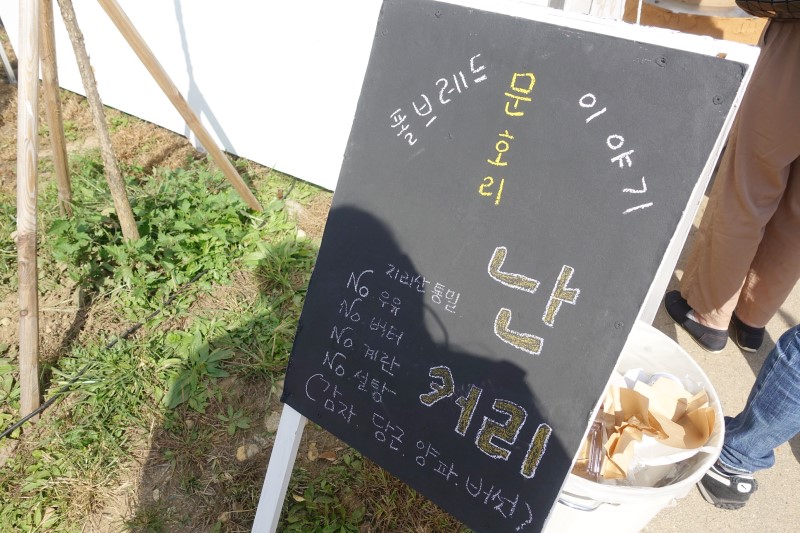 폴브레드
문호리
이야기
난
커리
지리산 통밀
No 우유
No 버터
No 계란
No 설탕
(감자. 당근. 양파. 버섯?)